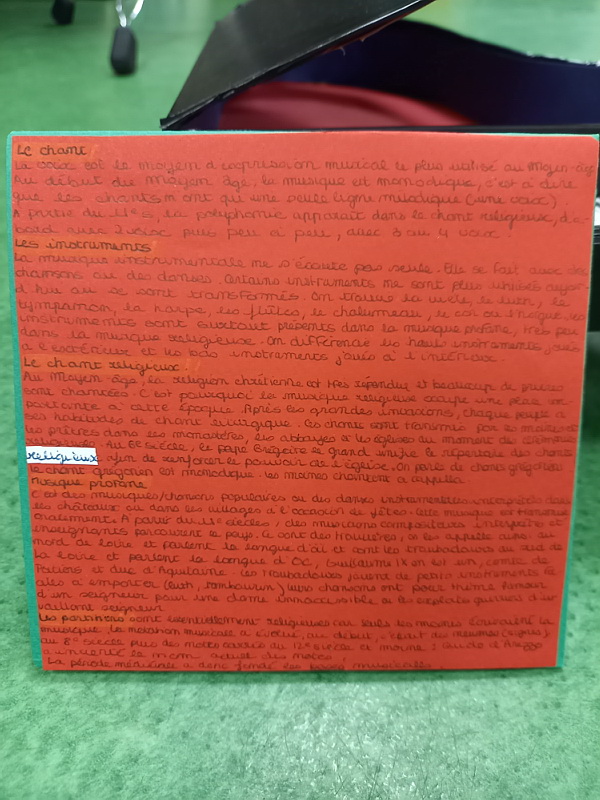 Le chant
La voix est le moyen d'expression musical le plus utilisé au Moyen-âge
Au début du Moyen âge, la musique est monodique, c'est à dire
que les chants n'ont qu'une seule ligne mélodique (une voix).
A partir du 11e s, la polyphonie apparaît dans le chant religieux, d'a-
bord avec 2 voix puis peu à peu, avec 3 ou 4 voix.
Les instruments
La musique instrumentale ne s'écoute pas seule. Elle se fait avec des
chansons ou des danses. Certains instruments ne sont plus utilisés aujour-
d'hui ou se sont transformés. On trouve la vièle, le luth, le
tympanon, la harpe, les flûtes, le chalumeau, le cor ou l'orgue. Les
instruments sont surtout présents dans la musique profane, très peu
dans la musique religieuse. On différencie les hauts instruments, joués
à l'extérieur et les bas instruments joués à l'intérieur.
Le chant religieux
Au Moyen-âge, la religion chrétienne est très répandue et beaucoup de
sont chantées. C'est pourquoi la musique religieuse occupe une place im-
portante à cette époque. Après les grandes invasions, chaque peuple a
ses habitudes de chant liturgique. Les chants sont transmis par les
les prêtres dans les monastères, les abbayes et les églises au moment des cérémonies
religieuses. Au 6e siècle, le pape Grégoire le grand unifie le répertoire des chants
religieux afin de renforcer le pouvoir de l'église. On parle de chants grégoriens
le chant grégorien est monodique. les moines chantent a cappella.
Musique profane
C'est des musiques/chansons populaires ou des danses instrumentales interprétées dans
les châteaux ou dans les villages à l'occasion de fêtes. Cette musique est transmise
oralement. A partir du 11e siècles, des musiciens compositeurs interprètes et
parcourent le pays. Ce sont des trouvères, on les appelle ainsi au
nord de la Loire et parlent la langue d'oïl et sont les troubadours au sud de
la Loire et parlent la langue d'Oc, Guillaume IX en est un, comte de
Poitiers et duc d'Aquitaine. Les troubadours jouent de petits instruments fa-
ciles à emporter (luth, tambourin) leurs chansons ont pour thème l'amour
d'un seigneur pour une dame innaccessible ou les exploits guerriers d'un
vaillant seigneur.
Les partitions sont essentiellement religieuses car seuls les moines écrivaient la
musique. La notation musicale a évolué, au début, c'était des neumes (signes)
au 8e siècle puis des notes carrées du 12e siècle et moine : Guido d'Arezzo
a inventé le nom actuel des notes.
La période médiévale a donc fondé les bases musicales.